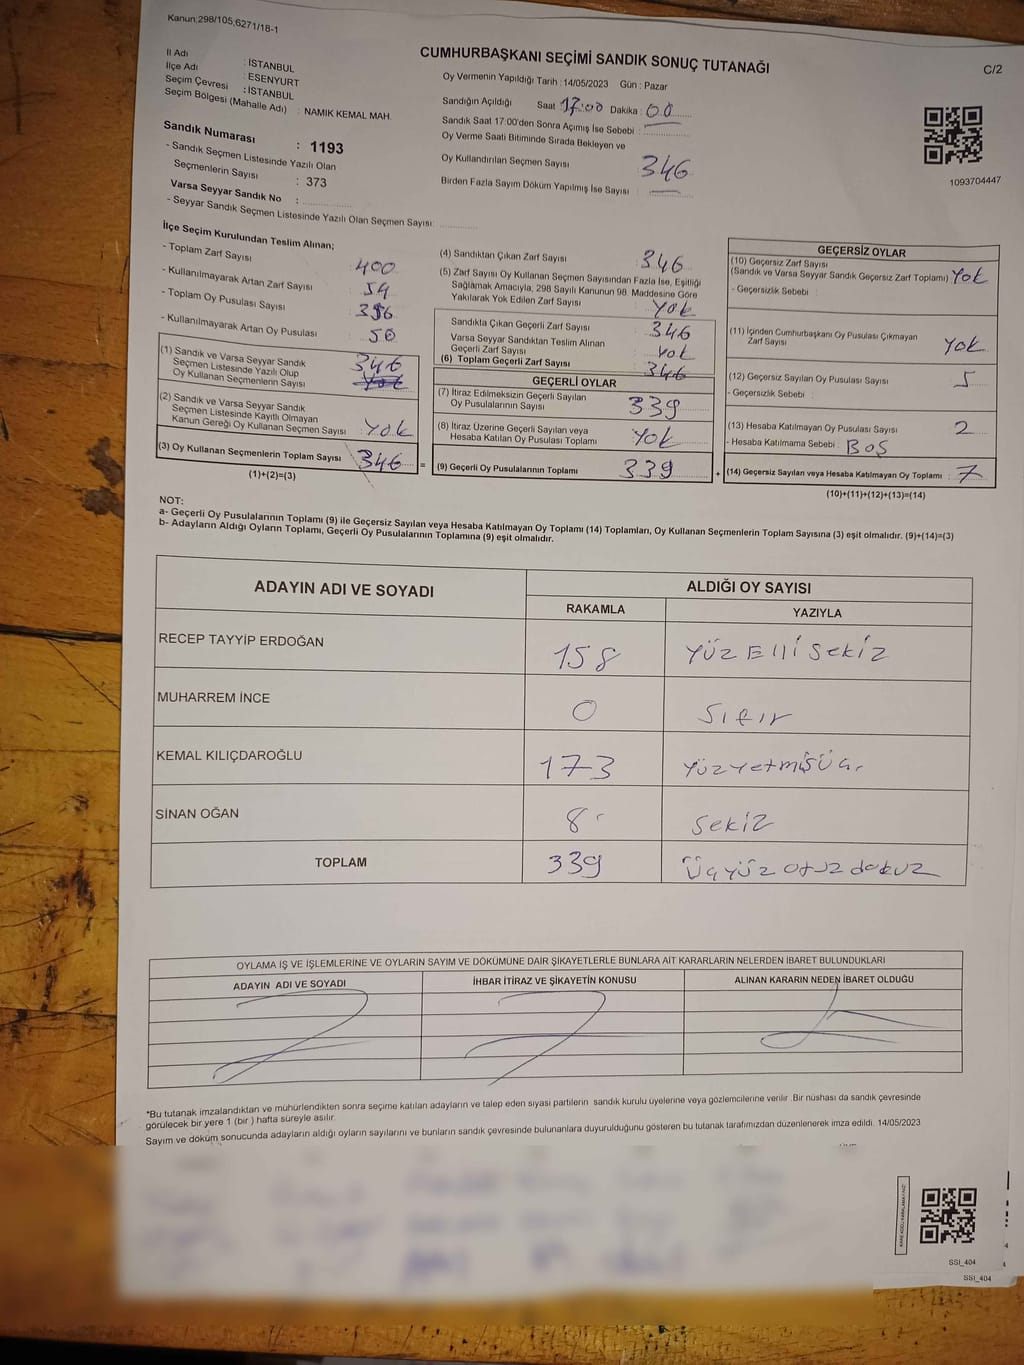 Kanun:298/105,6271/18-1
CUMHURBAŞKANI SEÇİMİ SANDIK SONUÇ TUTANAĞI
C/2
İl Adı : İSTANBUL
İlçe Adı : ESENYURT
Seçim Çevresi : İSTANBUL
Seçim Bölgesi (Mahalle Adı) : NAMIK KEMAL MAH.
Sandık Numarası : 1193
- Sandık Seçmen Listesinde Yazılı Olan
Seçmenlerin Sayısı : 373
Varsa Seyyar Sandık No :
- Seyyar Sandık Seçmen Listesinde Yazılı Olan Seçmen Sayısı:
Oy Vermenin Yapıldığı Tarih : 14/05/2023 Gün : Pazar
Sandığın Açıldığı Saat 17:00 Dakika : 00
Sandık Saat 17:00'den Sonra Açımış İse Sebebi :
Oy Verme Saati Bitiminde Sırada Bekleyen ve
Oy Kullandırılan Seçmen Sayısı 346
Birden Fazla Sayım Döküm Yapılmış İse Sayısı :
1093704447
İlçe Seçim Kurulundan Teslim Alınan;
- Toplam Zarf Sayısı : 400
- Kullanılmayarak Artan Zarf Sayısı : 54
- Toplam Oy Pusulası Sayısı : 396
- Kullanılmayarak Artan Oy Pusulası : 50
(1) Sandık ve Varsa Seyyar Sandık
Seçmen Listesinde Yazılı Olup
Oy Kullanan Seçmenlerin Sayısı : 346
(2) Sandık ve Varsa Seyyar Sandık
Seçmen Listesinde Kayıtlı Olmayan
Kanun Gereği Oy Kullanan Seçmen Sayısı : YOK
(3) Oy Kullanan Seçmenlerin Toplam Sayısı : 346 =
(1)+(2)=(3)
(4) Sandıktan Çıkan Zarf Sayısı : 346
(5) Zarf Sayısı Oy Kullanan Seçmen Sayısından Fazla İse, Eşitliği
Sağlamak Amacıyla, 298 Sayılı Kanunun 98. Maddesine Göre
Yakılarak Yok Edilen Zarf Sayısı : YOK
Sandıkta Çıkan Geçerli Zarf Sayısı : 346
Varsa Seyyar Sandıktan Teslim Alınan
Geçerli Zarf Sayısı : YOK
(6) Toplam Geçerli Zarf Sayısı : 346
GEÇERLİ OYLAR
(7) İtiraz Edilmeksizin Geçerli Sayılan
Oy Pusulalarının Sayısı : 339
(8) İtiraz Üzerine Geçerli Sayılan veya
Hesaba Katılan Oy Pusulası Toplamı : YOK
(9) Geçerli Oy Pusulalarının Toplamı : 339 +
GEÇERSİZ OYLAR
(10) Geçersiz Zarf Sayısı
(Sandık ve Varsa Seyyar Sandık Geçersiz Zarf Toplamı) YOK
- Geçersizlik Sebebi :
(11) İçinden Cumhurbaşkanı Oy Pusulası Çıkmayan
Zarf Sayısı YOK
(12) Geçersiz Sayılan Oy Pusulası Sayısı 5
- Geçersizlik Sebebi :
(13) Hesaba Katılmayan Oy Pusulası Sayısı : 2
- Hesaba Katılmama Sebebi : BOŞ
(14) Geçersiz Sayılan veya Hesaba Katılmayan Oy Toplamı : 7
(10)+(11)+(12)+(13)=(14)
NOT:
a- Geçerli Oy Pusulalarının Toplamı (9) ile Geçersiz Sayılan veya Hesaba Katılmayan Oy Toplamı (14) Toplamları, Oy Kullanan Seçmenlerin Toplam Sayısına (3) eşit olmalıdır. (9)+(14)=(3)
b- Adayların Aldığı Oyların Toplamı, Geçerli Oy Pusulalarının Toplamına (9) eşit olmalıdır.
ADAYIN ADI VE SOYADI ALDIĞI OY SAYISI
RAKAMLA YAZIYLA
RECEP TAYYİP ERDOĞAN 158 YÜZ Elli Sekiz
MUHARREM İNCE 0 Sıfır
KEMAL KILIÇDAROĞLU 173 Yüzyetmişüç
SİNAN OĞAN 8 Sekiz
TOPLAM 339 Üçyüz otuz dokuz
OYLAMA İŞ VE İŞLEMLERİNE VE OYLARIN SAYIM VE DÖKÜMÜNE DAİR ŞİKAYETLERLE BUNLARA AİT KARARLARIN NELERDEN İBARET BULUNDUKLARI
ADAYIN ADI VE SOYADI İHBAR İTİRAZ VE ŞİKAYETİN KONUSU ALINAN KARARIN NEDEN İBARET OLDUĞU
*Bu tutanak imzalandıktan ve mühürlendikten sonra seçime katılan adayların ve talep eden siyasi partilerin sandık kurulu üyelerine veya gözlemcilerine verilir. Bir nüshası da sandık çevresinde
görülecek bir yere 1 (bir ) hafta süreyle asılır.
Sayım ve döküm sonucunda adayların aldığı oyların sayılarını ve bunların sandık çevresinde bulunanlara duyurulduğunu gösteren bu tutanak tarafımızdan düzenlenerek imza edildi. 14/05/2023
SSI_404
SSI_404